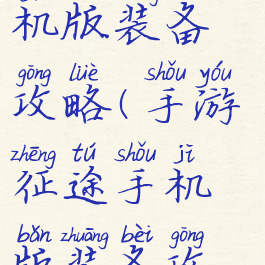 机版装备
gōng lüè shǒu yóu
攻略(手游
zhēng tú shǒu jī
征途手机
bǎn zhuāng bèi gōng
版装备攻